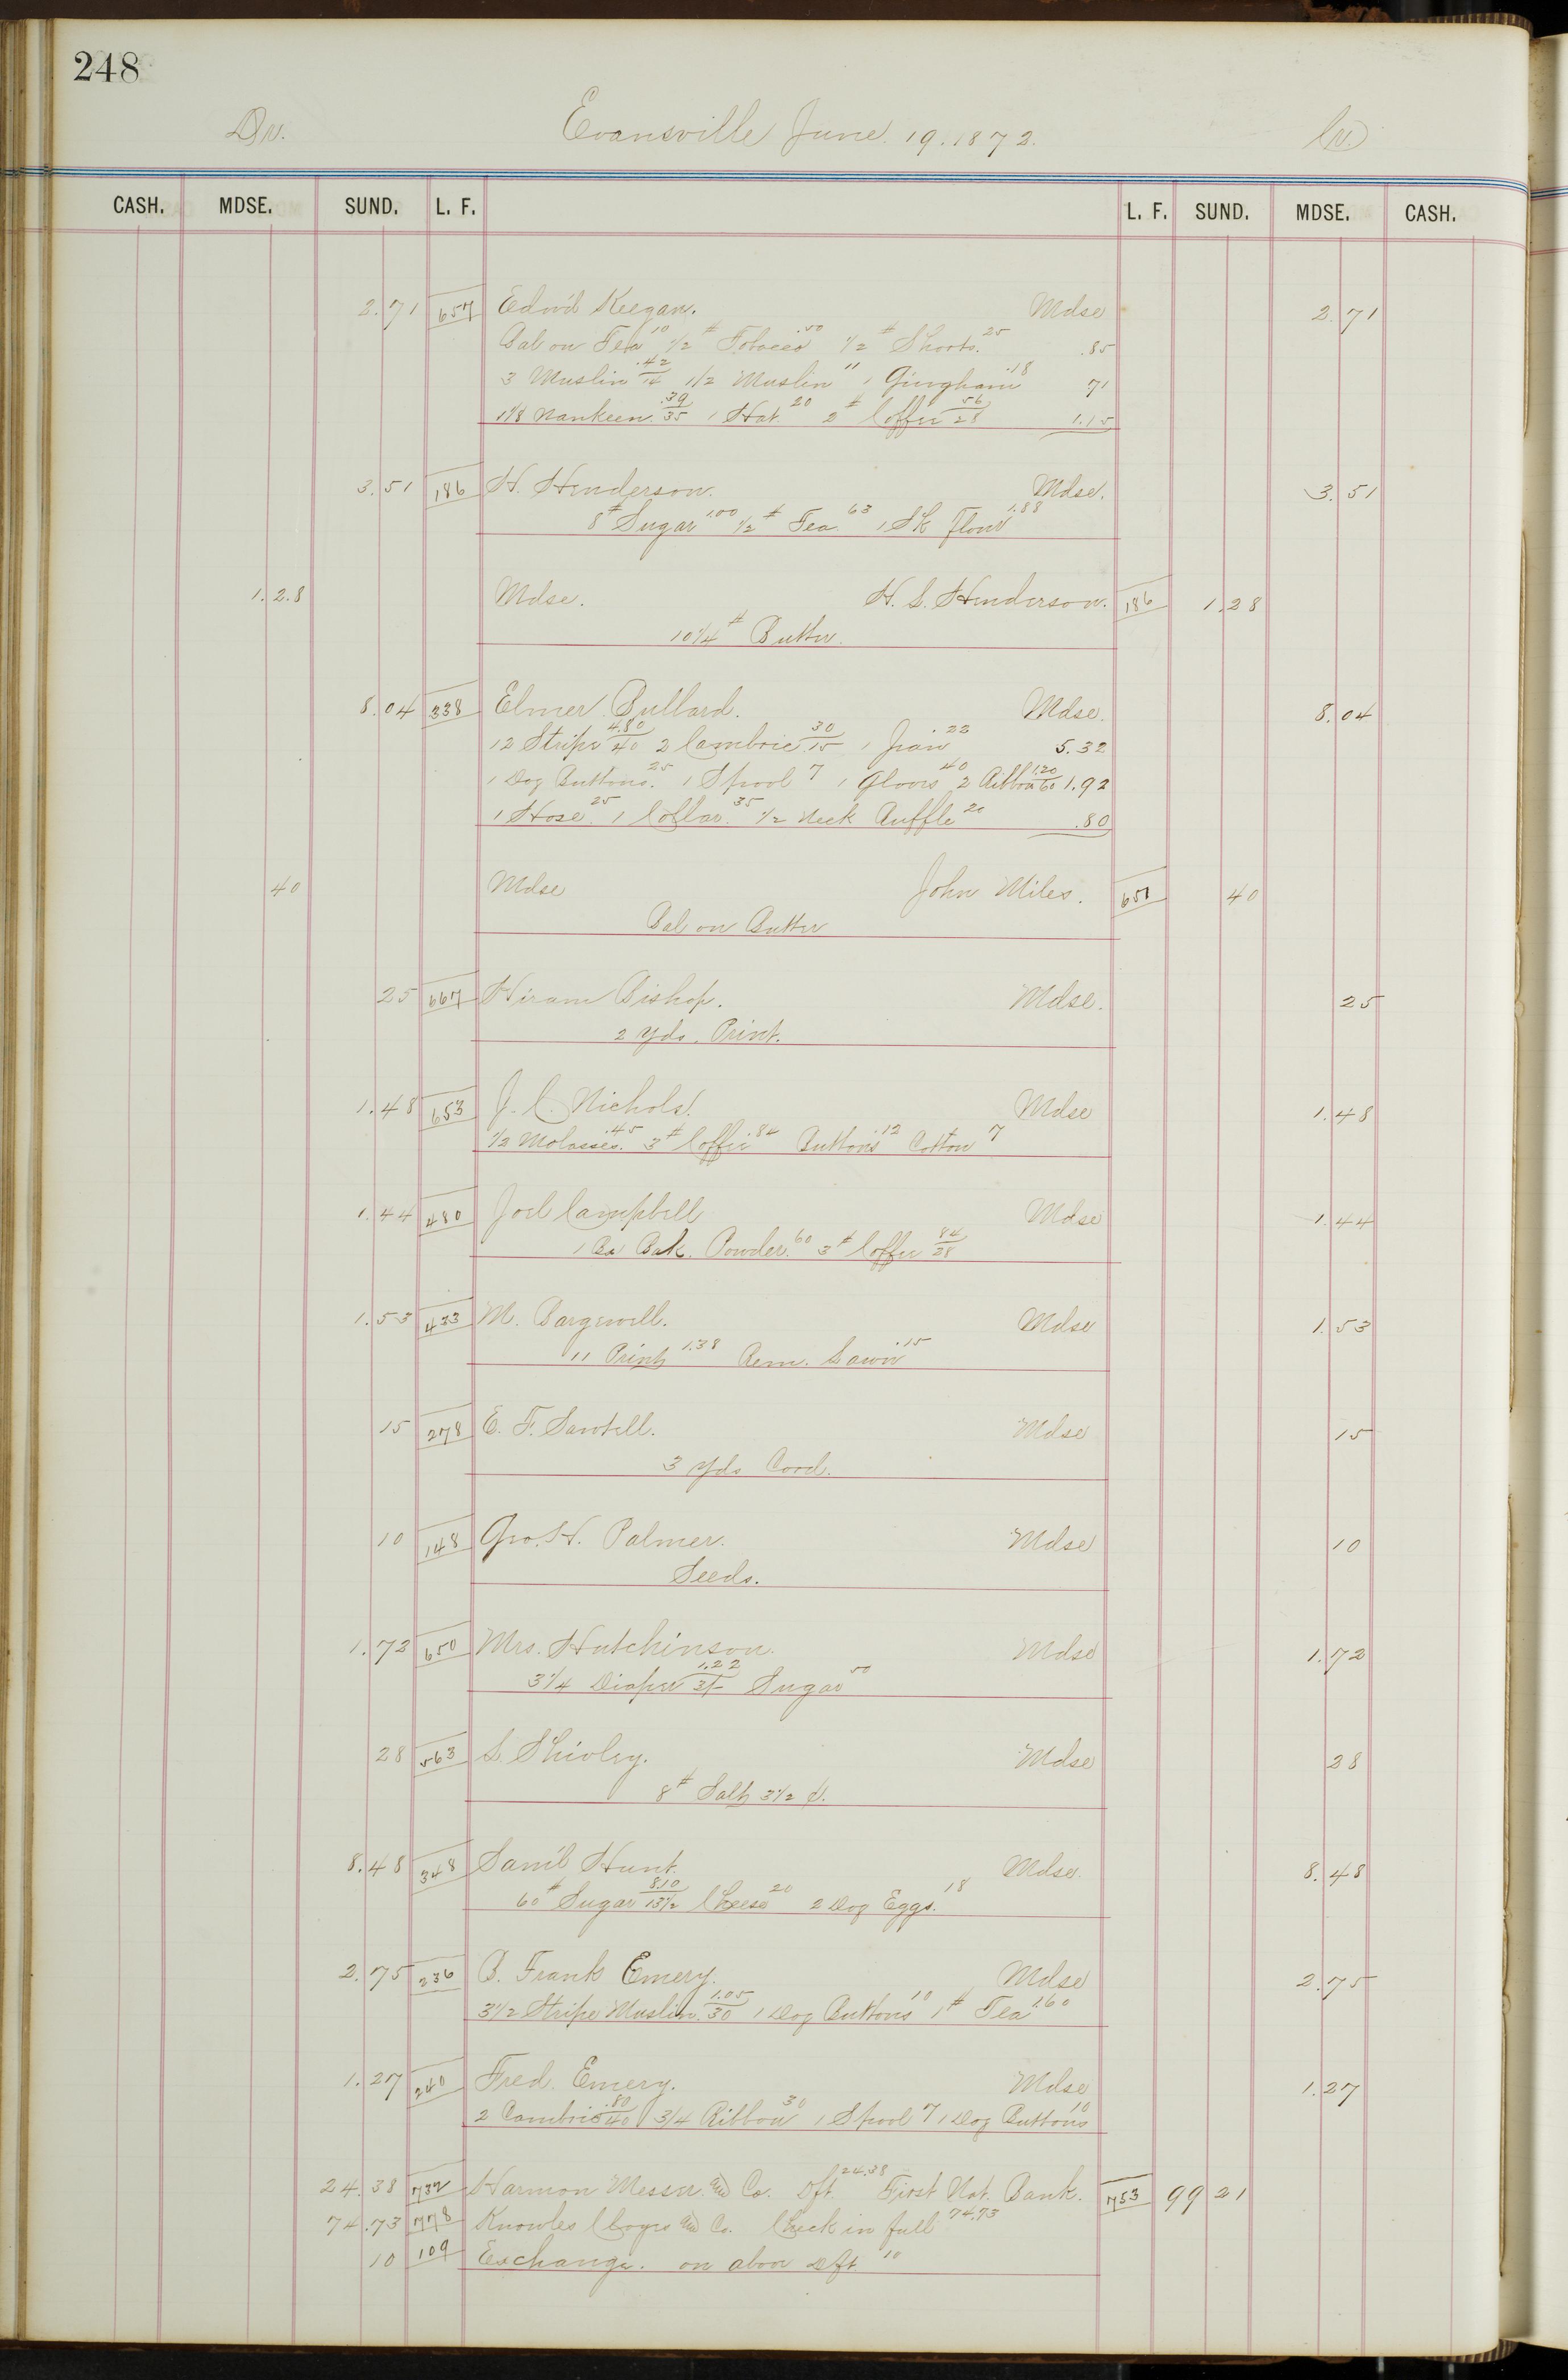 248
Dr. Evansville June. 19. 1872. Cr.
CASH. MDSE. SUND. L. F. L. F. SUND. MDSE. CASH.
2.71 657 Edw'd Keegan. Mdse 2.71
Bal on Tea 10 1/2 # Tobacco .50 1/2 # Shorts. 25 .85
3 Muslin .42/14 1/2 Muslin 11 1 Gingham .18 71
1 1/8 Nankeen .39/35 1 Hat. 20 2 # Coffee 56/28 1.15
3.51 186 H. Henderson. Mdse. 3.51
8 # Sugar 1.00 1/2 # Tea. 63 1 Sk Flour 1.88
1.28 Mdse. H. S. Henderson. 186 1.28
10 1/4 # Butter.
8.04 338 Elmer Bullard. Mdse. 8.04
12 Stripe 4.80/40 2 Cambric .30/15 1 Jean 22 5.32
1 Doz Buttons. 25 1 Spool 7 1 Gloves 40 2 Ribbon 1.20/60 1.92
1 Hose. 25 1 Collar. 35 1/2 Neck Ruffle 20 .80
40 Mdse John Miles. 651 40
Bal on Butter
25 667 Hiram Bishop. Mdse. 25
2 Yds. Print.
1.48 653 J. C. Nichols. Mdse 1.48
1/2 Molasses. .45 3 # Coffee .84 Buttons .12 Cotton 7
1.44 480 Joel Campbell Mdse 1.44
1 Bx Bak. Powder. 60 3 # Coffee 84/28
1.53 433 M. Bargewell. Mdse 1.53
11 Print 1.38 Rem. Lawn .15
15 278 E. F. Sawtell. Mdse 15
3 Yds Cord.
10 148 Geo. H. Palmer. Mdse 10
Seeds.
1.72 650 Mrs. Hutchinson. Mdse 1.72
3 1/4 Diaper 1.22/3/- Sugar 50
28 563 L. Shivley. Mdse 28
8 # Salt 3 1/2 ¢.
8.48 348 Sam'l Hunt. Mdse. 8.48
60 # Sugar 8.10/13 1/2 Cheese 20 2 Doz Eggs. 18
2.75 236 B. Frank Emery. Mdse 2.75
3 1/2 Stripe Muslin. 1.05/30 1 Doz Buttons 10 1 # Tea 1.60
1.27 240 Fred. Emery. Mdse 1.27
2 Cambric .80/40 3/4 Ribbon 30 1 Spool 7 1 Doz Buttons 10
24.38 732 Harmon Messer and Co. Dft. 24.38 First Nat. Bank. 753 99 21
74.73 778 Knowles Cloyes and Co. Check in full 74.73
10 109 Exchange. on above Dft. 10